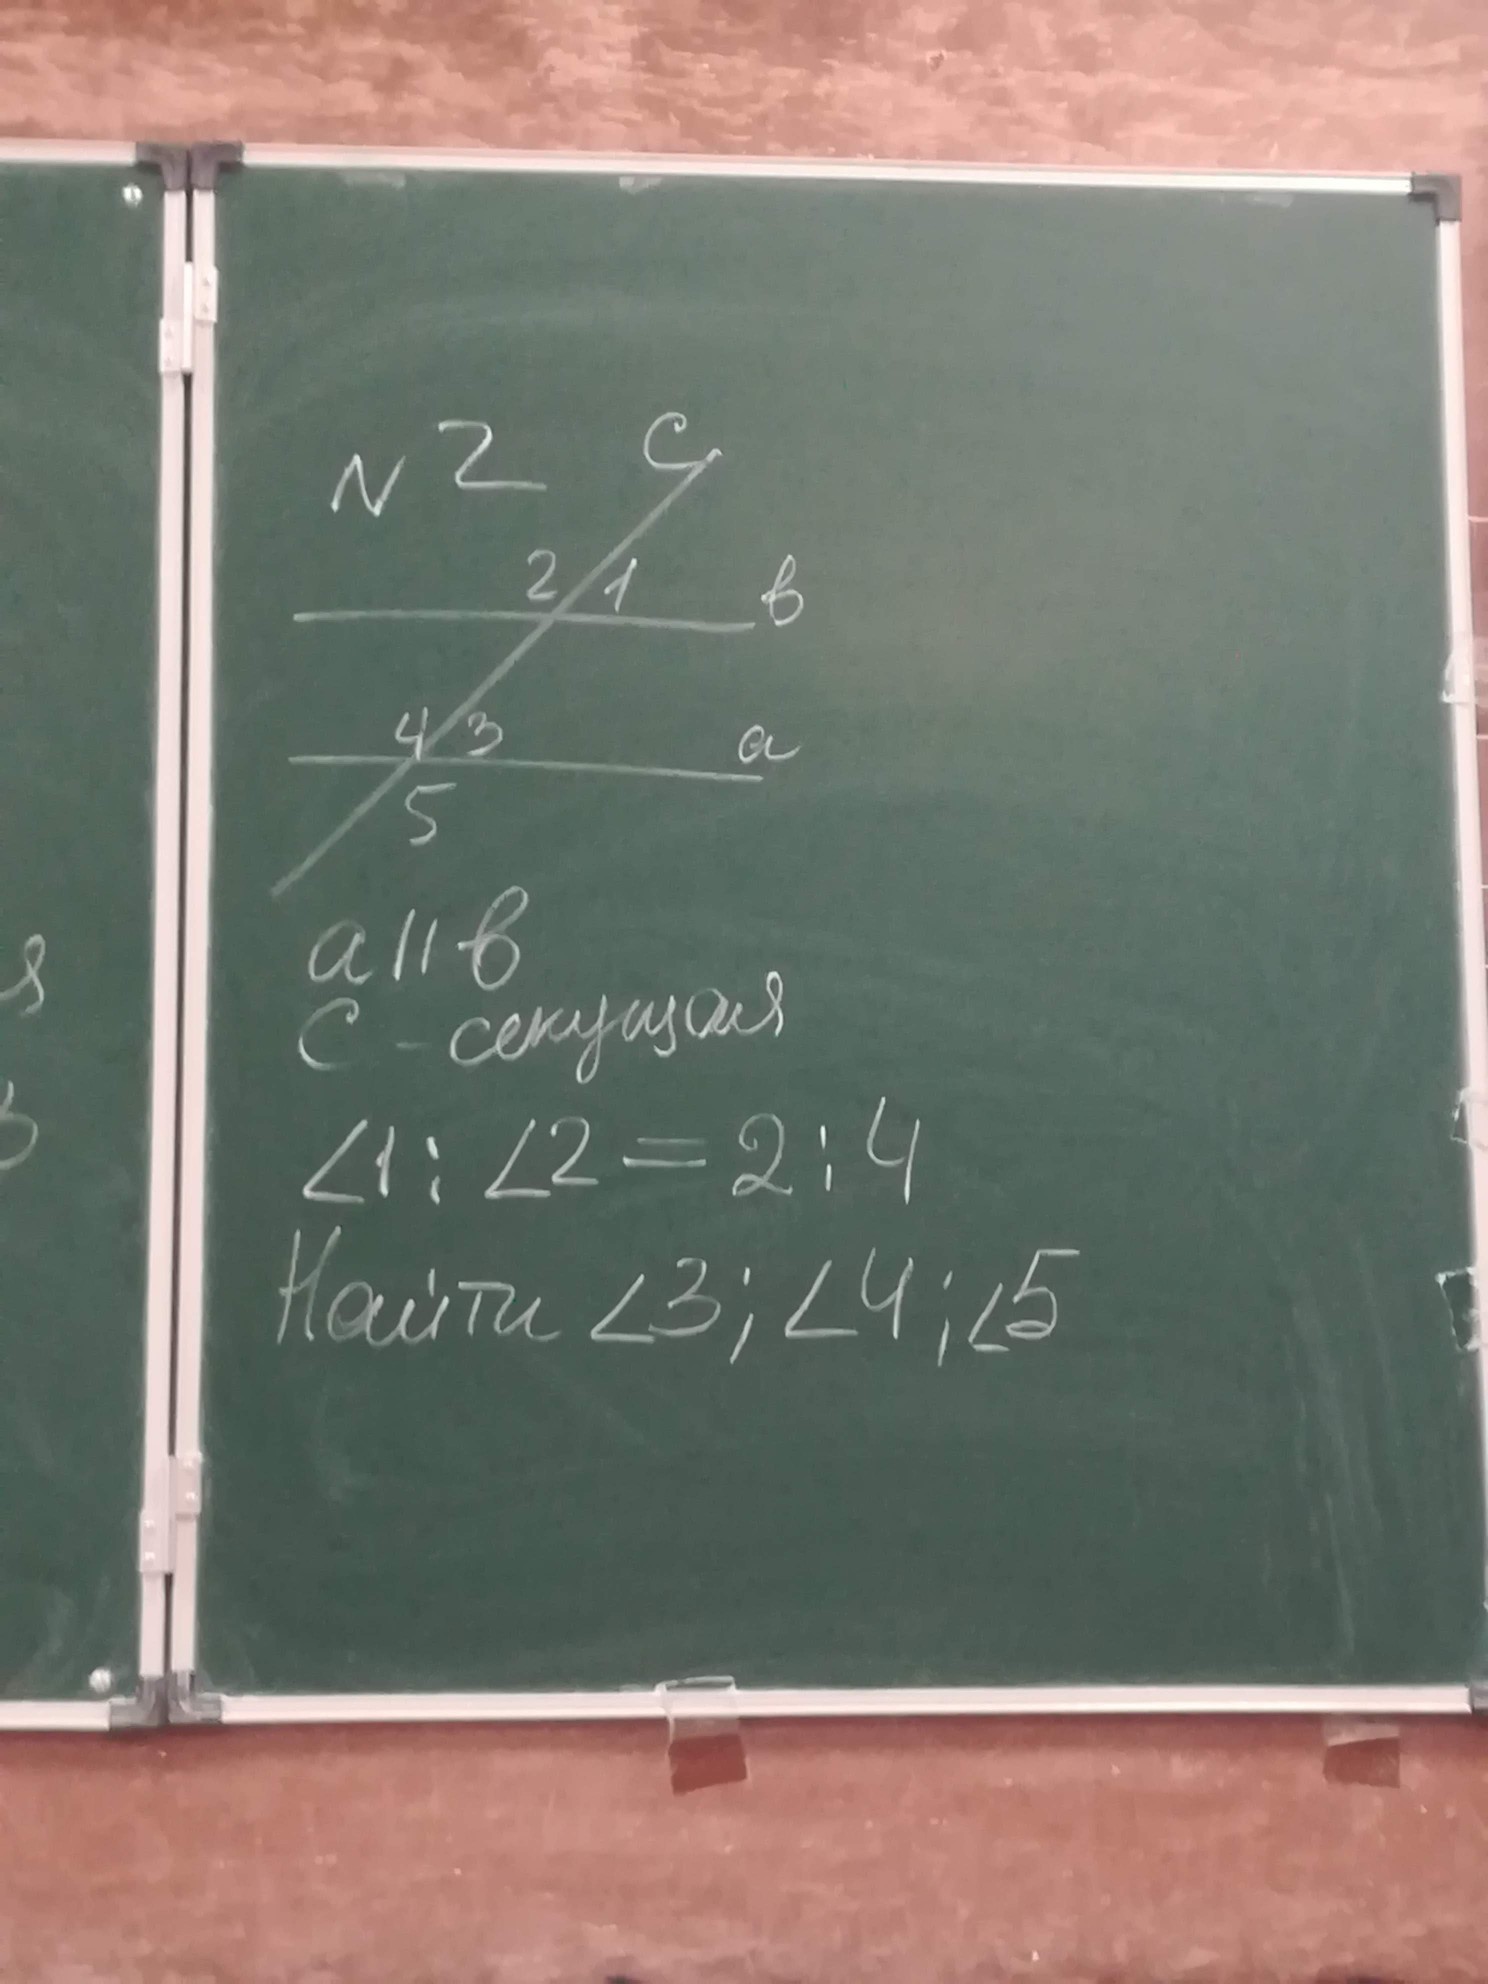 N 2
C
2 1 в
4 3 а
5
а || в
С - секущая
∠1 : ∠2 = 2 : 4
Найти ∠3; ∠4; ∠5